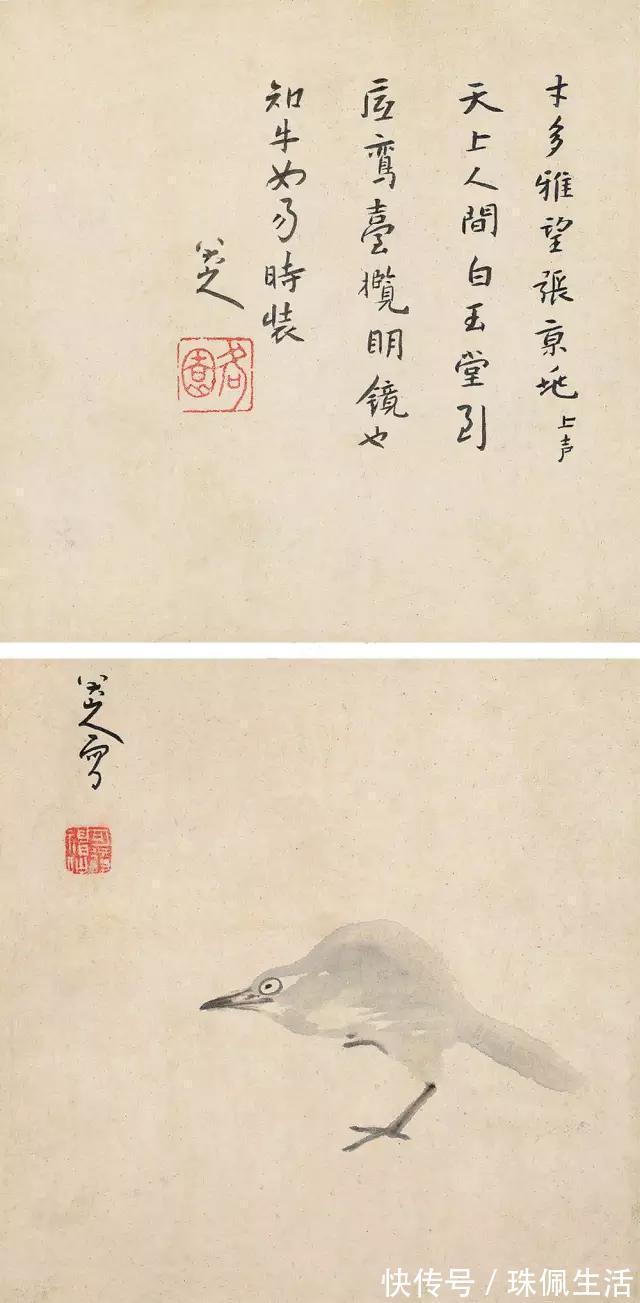 才多雅望張京兆 上声
天上人間白玉堂到
底鸞臺攬明鏡也
知牛女易時裝
八大山人
八大山人寫
可得神仙
快传号 / 珠佩生活